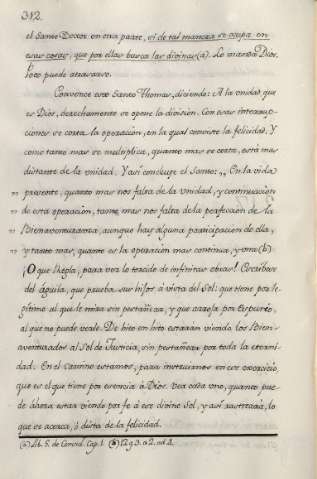 312.
el Santo Doctor en otra parte, si de tal manera se ocupa en
esas cosas, que por ellas busca las divinas (a). Lo manda Dios,
poco puede atrasarse.
Convence esto Santo Thomas, diciendo: A la unidad que
es Dios, derechamente se opone la división. Con esas interrup-
ciones se corta la operación, en la qual consiste la felicidad. Y
como tanto mas se multiplica, quanto mas se corta, esta mas
distante de la unidad. Y asi concluye el Santo: „ En la vida
„ presente, quanto mas nos falta de la Unidad, y continuacion
„ de esta operación, tanto mas nos falta de la perfección de la
„ Bienaventuranza, aunque hay alguna participacion de ella,
„ y tanto mas, quanto es la operación mas continua, y una (b).
¡O que Regla, para ver lo texido de infinitas obras!
del aguila, que prueba sus hijos á vista del Sol: que tiene por le-
gitimo al que le mira sin pestañear, y que arroja por espurio,
al que no puede verle. De hito en hito estaran viendo los Bien-
aventurados al Sol de Justicia, sin pestañear por toda la eterni-
dad. En el camino estamos, para instruirnos en ese exercicio,
que es el que tiene por esencia á Dios. Vea cada uno, quanto pue-
de durar estar viendo por fe á ese divino Sol, y asi rastreará, lo
que se acerca, ó dista de la felicidad.
(a) Lib. 5. de Concord. Cap. 1. (b) 1.2. q. 3. a. 2. ad 4.